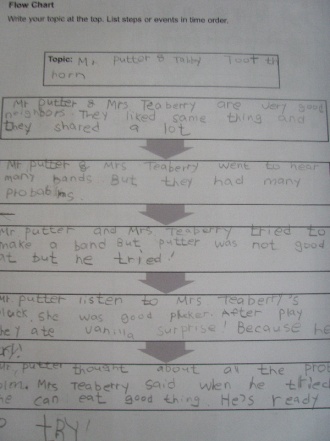 Flow Chart
Write your topic at the top. List steps or events in time order.
Topic: Mr putter & Tabby Toot th
horn
Mr putter & Mrs Teaberry are very good
neighbors. They liked same thing and
they shared a lot
Mr putter & Mrs Teaberry went to hear
many bands But they had many
Mr putter and Mrs Teaberry tried to
make a band But putter was not good
at but he tried!
Mr. putter listen to Mrs Teaberry's
she was good After play
they ate vanilla surprise! Because he
Mr, putter thought about all the
Mrs Teaberry said he
he can eat good thing. He's ready
TRY!